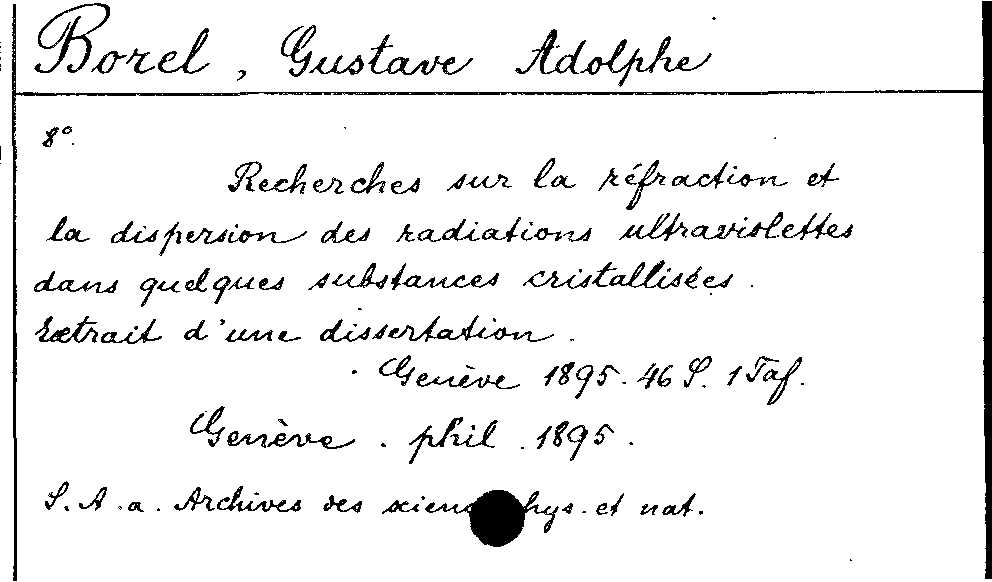 Borel, Gustave Adolphe
8°.
Recherches sur la réfraction et
la dispersion des radiations ultraviolettes
dans quelques substances cristallisées.
Extrait d'une dissertation.
Genève 1895. 46 S. 1 Taf.
Genève. phil. 1895.
S. A. a. Archives des scienc hys. et nat.